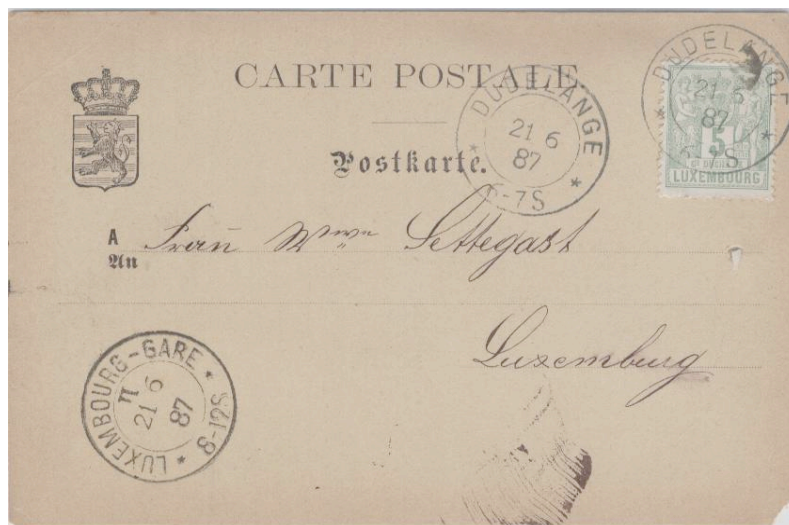 CARTE POSTALE
Postkarte.
DUDELANGE
21 6
87
6-7S
DUDELANGE
21 6
87
7S
5
LUXEMBOURG
A
An
Frau Wwe Settegast
Luxemburg
LUXEMBOURG-GARE
II
21 6
87
8-12S